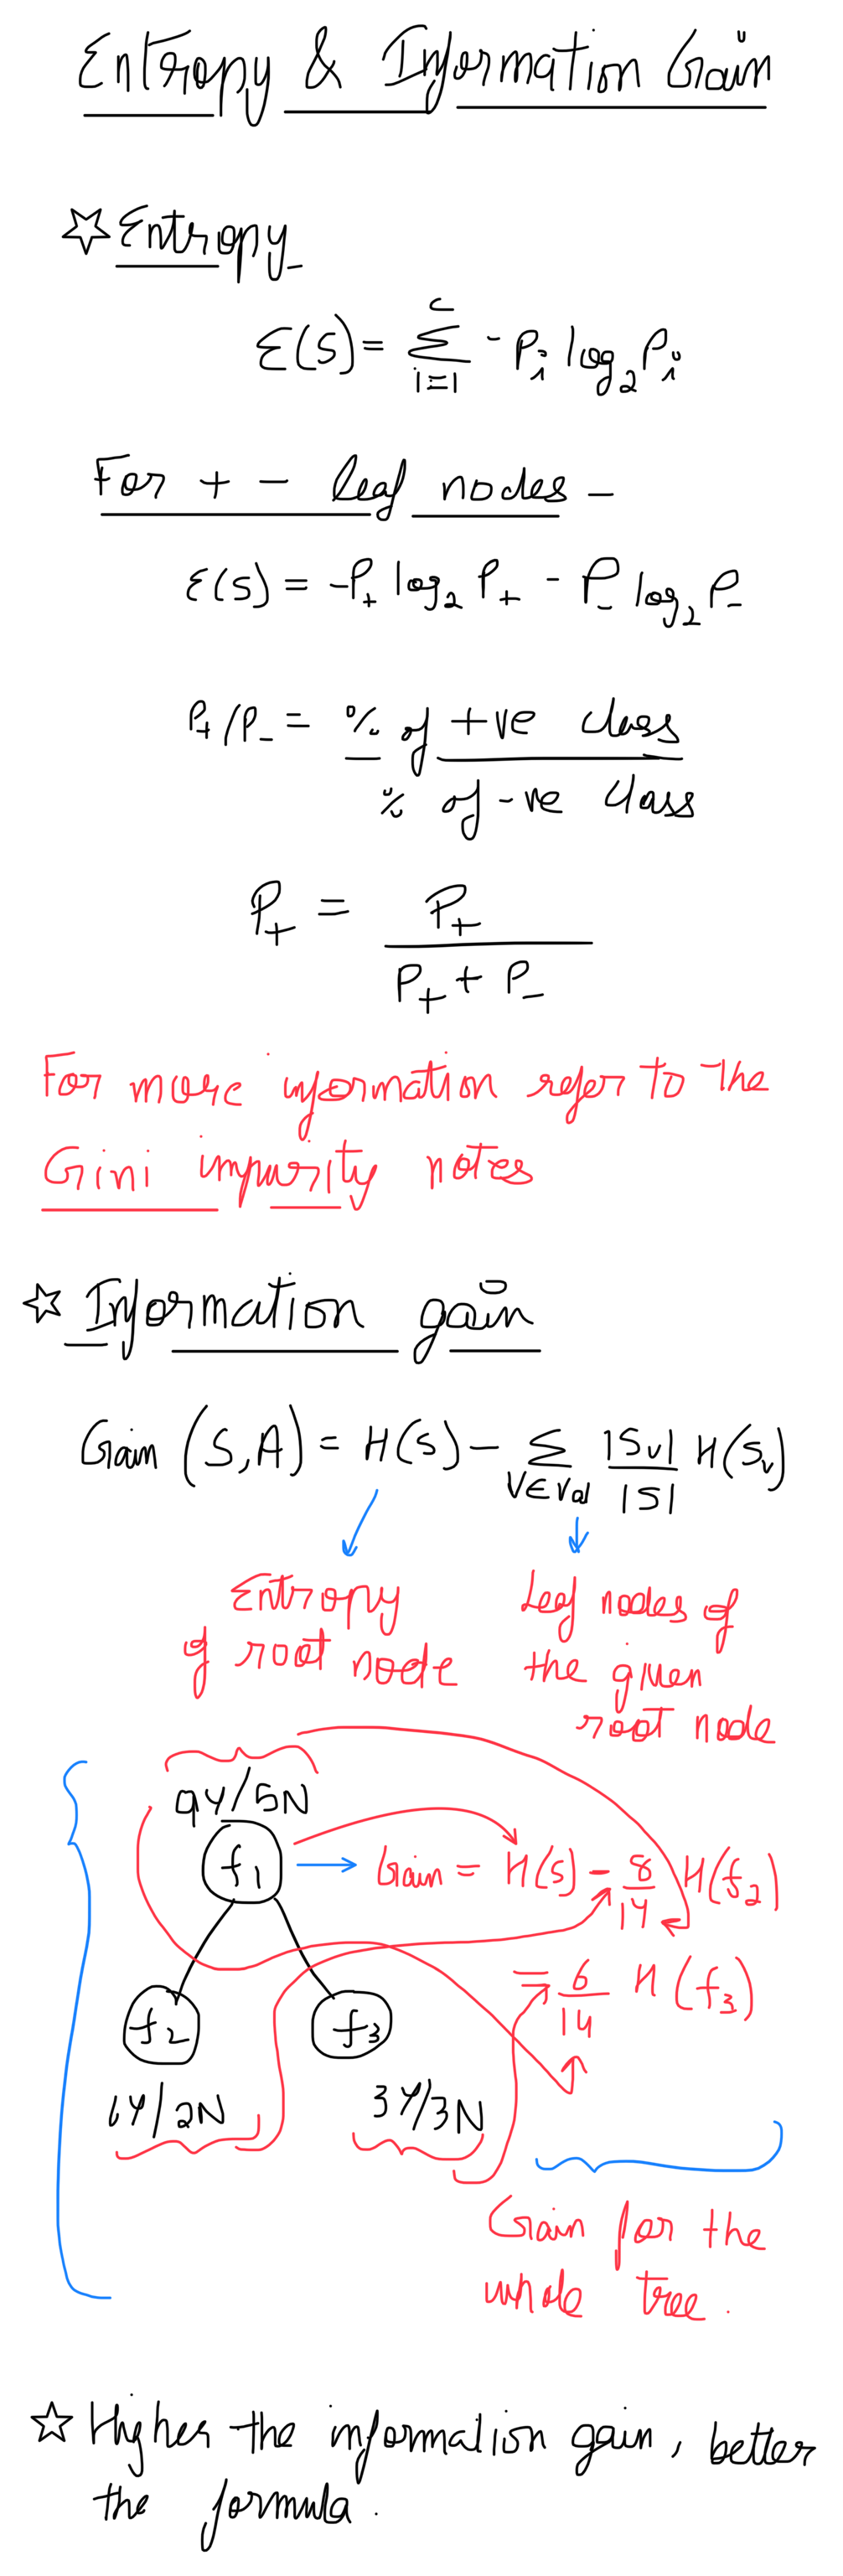 Entropy & Information Gain
☆ Entropy -
E(S) = Σ_{i=1}^{c} - P_i log_2 P_i
For + - leaf nodes -
E(S) = -P_+ log_2 P_+ - P_- log_2 P_-
P_+ / P_- = % of +ve class
% of -ve class
P_+ = P_+
P_+ + P_-
For more information refer to the
Gini impurity notes
☆ Information gain
Gain (S, A) = H(S) - Σ_{V∈Val} |Sv|/|S| H(Sv)
Entropy
of root node
Leaf nodes of
the given
root node
9Y/5N
f1
Gain = H(S) - 8/14 H(f2)
= 6/14 H(f3)
f2
f3
6Y/2N
3Y/3N
Gain for the
whole tree.
☆ Higher the information gain, better
the formula.